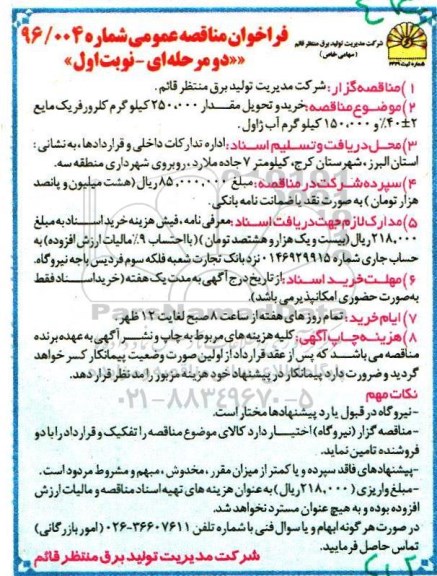 شرکت مدیریت تولید برق منتظر قائم
(سهامی خاص)
شماره ثبت ۴۴۳۹
فراخوان مناقصه عمومی شماره ۹۶/۰۰۴
««دو مرحله‌ای - نوبت اول
۱) مناقصه گزار: شرکت مدیریت تولید برق منتظر قائم.
۲) موضوع مناقصه: خرید و تحویل مقدار ۲۵۰،۰۰۰ کیلو گرم کلرور فریک مایع
۴۰±۲٪ و ۱۵۰،۰۰۰ کیلو گرم آب ژاول.
۳) محل دریافت و تسلیم اسناد: اداره تدارکات داخلی و قراردادها، به نشانی:
استان البرز، شهرستان کرج، کیلومتر ۷ جاده ملارد، روبروی شهرداری منطقه سه.
۴) سپرده شرکت در مناقصه: مبلغ ۸۵،۰۰۰،۰۰۰ ریال (هشت میلیون و پانصد
هزار تومان) به صورت نقد یا ضمانت نامه بانکی.
۵) مدارک لازم جهت دریافت اسناد: معرفی نامه، فیش هزینه خرید اسناد به مبلغ
۲۱۸،۰۰۰ ریال (بیست و یک هزار و هشتصد تومان) (با احتساب ۹٪ مالیات ارزش افزوده) به
حساب جاری شماره ۱۴۶۹۲۹۹۱۵ نزد بانک تجارت شعبه فلکه سوم فردیس باجه نیروگاه.
۶) مهلت خرید اسناد: از تاریخ درج آگهی به مدت یک هفته (خرید اسناد فقط
به صورت حضوری امکانپذیر می باشد).
۷) ایام خرید: تمام روز های هفته از ساعت ۸ صبح لغایت ۱۲ ظهر.
۸) هزینه چاپ آگهی: کلیه هزینه های مربوط به چاپ و نشر آگهی به عهده برنده
مناقصه می باشد که پس از عقد قرارداد از اولین صورت وضعیت پیمانکار کسر خواهد
گردید و ضرورت دارد پیمانکار در پیشنهاد خود هزینه مزبور را مد نظر قرار دهد.
۰۲۱-۸۸۳۴۹۶۷۰-۵
نکات مهم
-نیروگاه در قبول یا رد پیشنهادها مختار است.
-مناقصه گزار (نیروگاه) اختیار دارد کالای موضوع مناقصه را تفکیک و قرارداد را با دو
فروشنده تامین نماید.
-پیشنهادهای فاقد سپرده و یا کمتر از میزان مقرر، مخدوش، مبهم و مشروط مردود است.
-مبلغ واریزی (۲۱۸،۰۰۰ ریال) به عنوان هزینه های تهیه اسناد مناقصه و مالیات ارزش
افزوده بوده و به هیچ عنوان مسترد نخواهد شد.
در صورت هر گونه ابهام و یا سوال فنی با شماره تلفن ۳۶۶۰۷۶۱۱-۰۲۶ (امور بازرگانی)
تماس حاصل فرمایید.
شرکت مدیریت تولید برق منتظر قائم